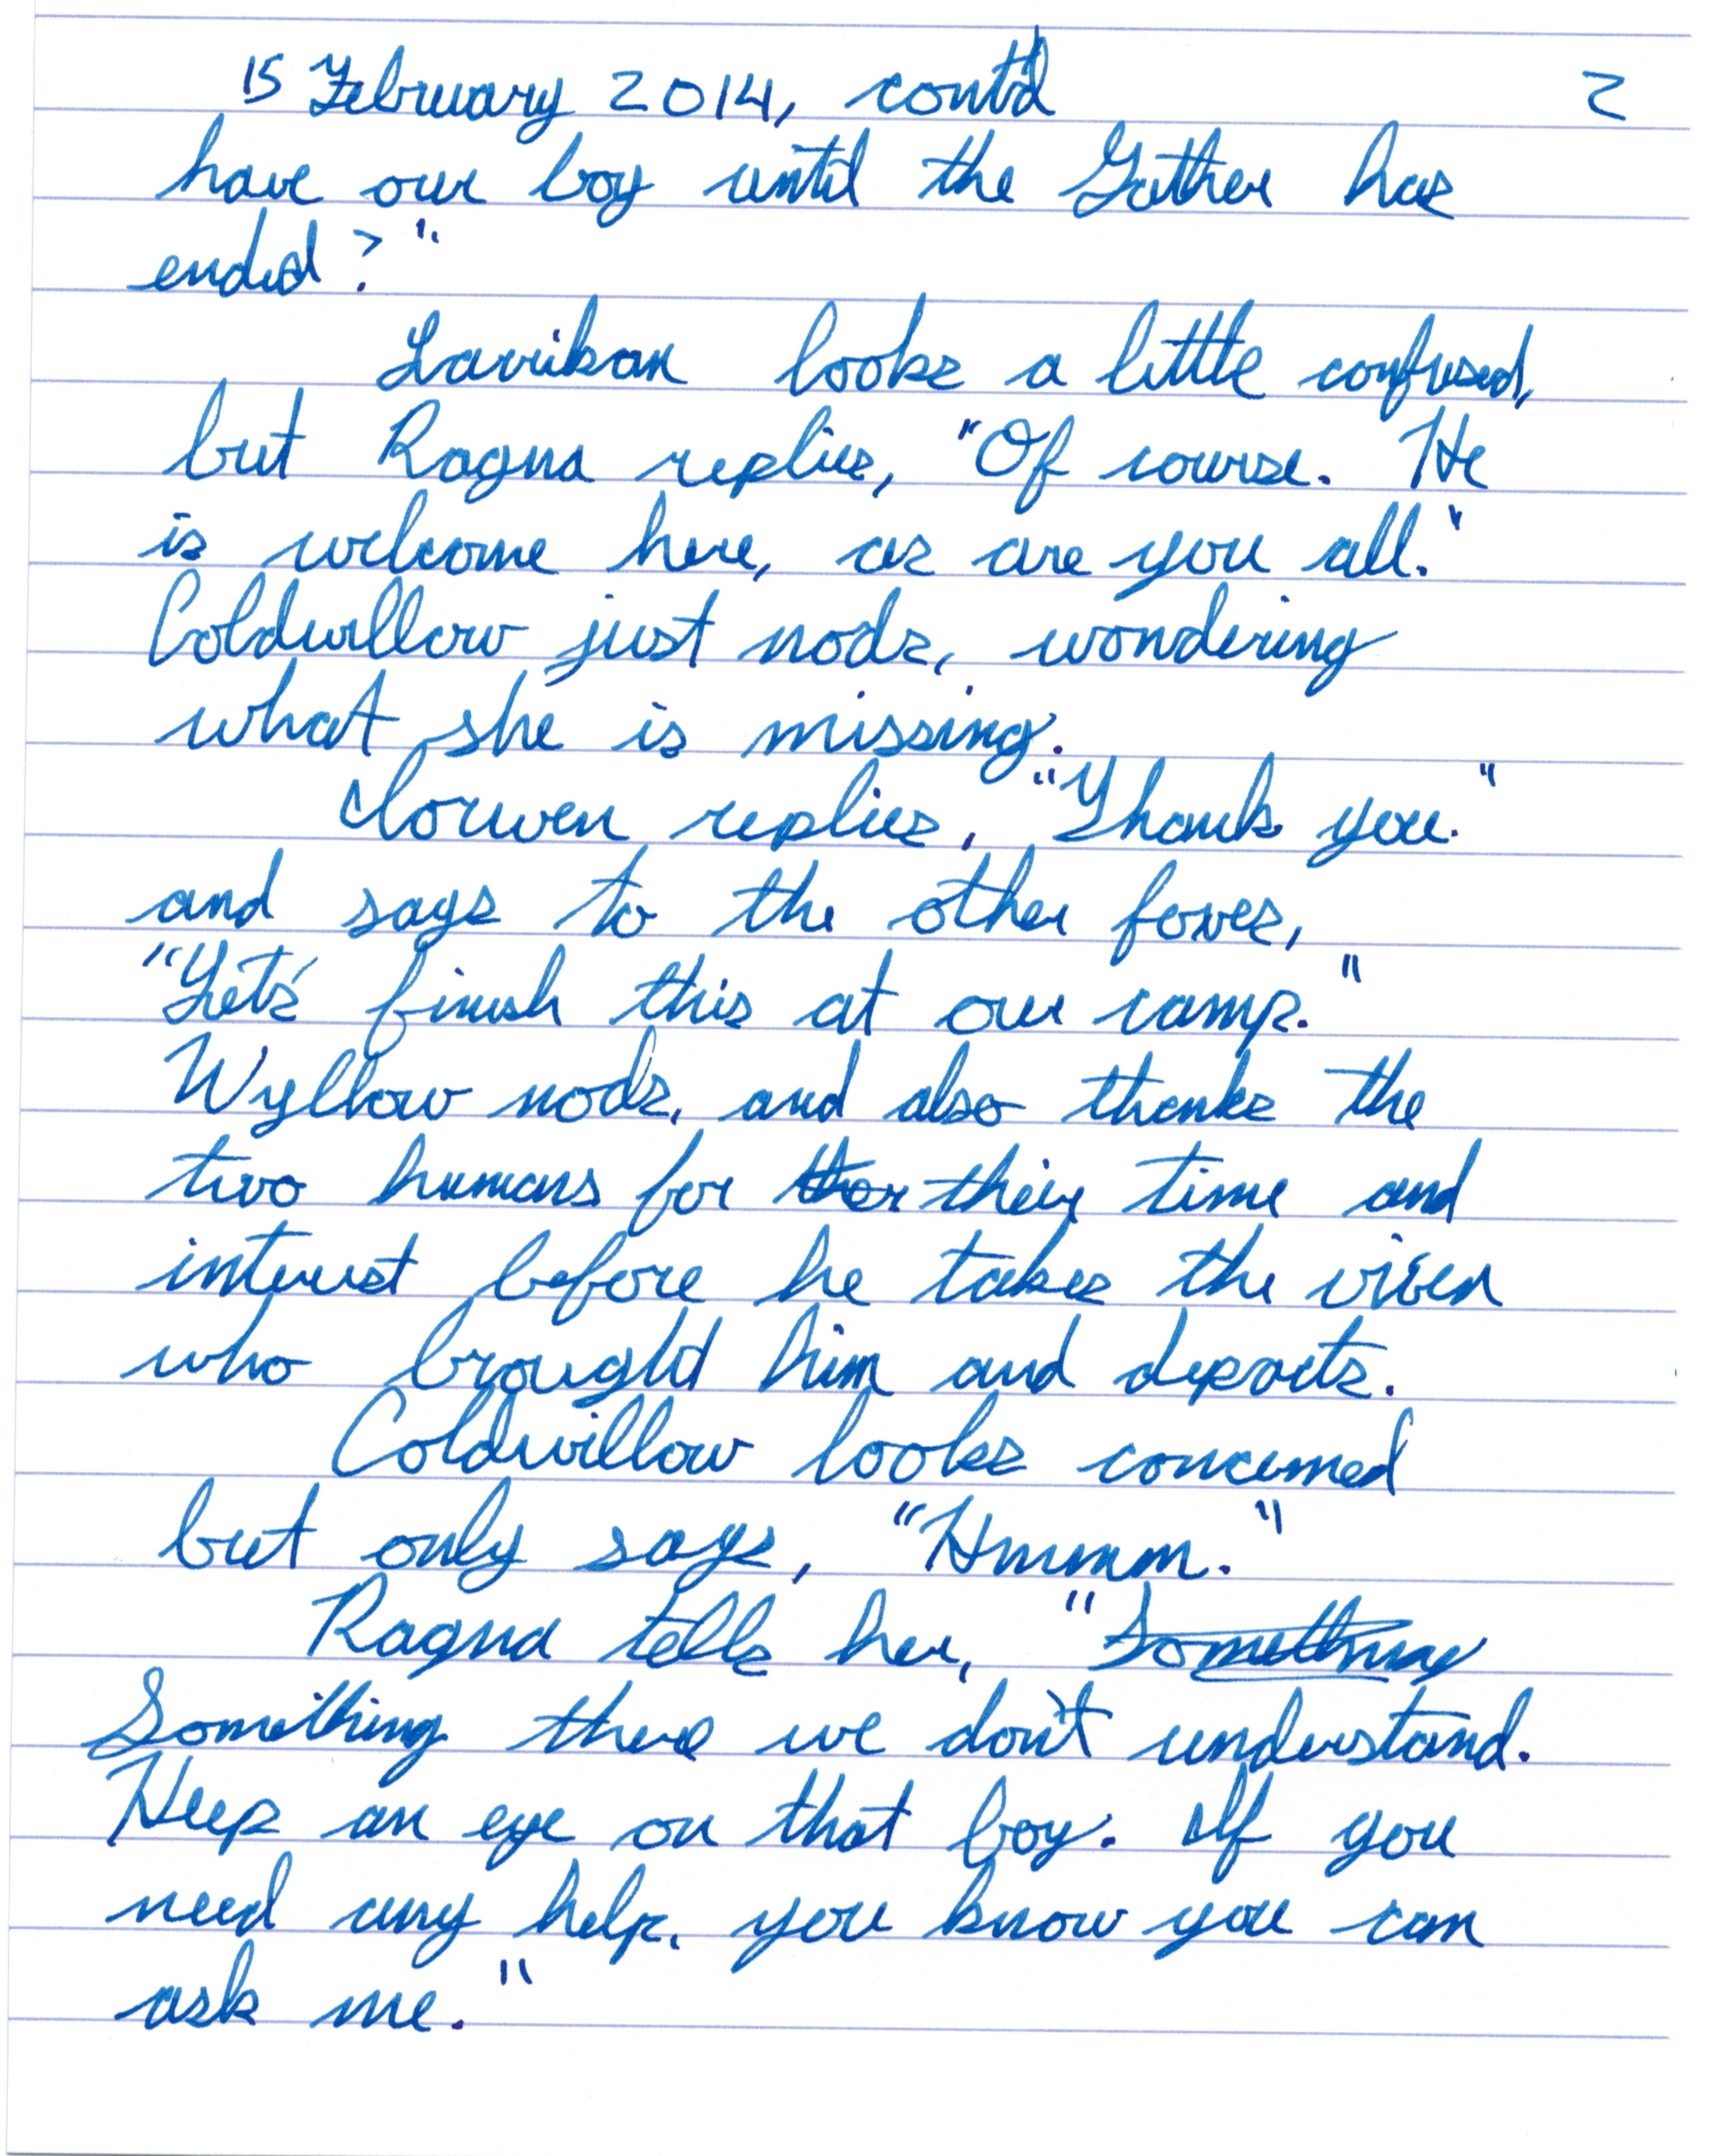 15 February 2014, cont'd 2
have our boy until the Gather has
ended?"
Lavrikan looks a little confused,
but Ragna replies, "Of course. He
is welcome here, as are you all."
Coldwillow just nods, wondering
what she is missing.
Iorwen replies, "Thank you."
and says to the other foxes,
"Let's finish this at our camp."
Wyllow nods, and also thanks the
two humans for their time and
interest before he takes the vixen
who brought him and departs.
Coldwillow looks concerned
but only says, "Hmmm."
Ragna tells her, "Something
Something there we don't understand.
Keep an eye on that boy. If you
need any help, you know you can
ask me."